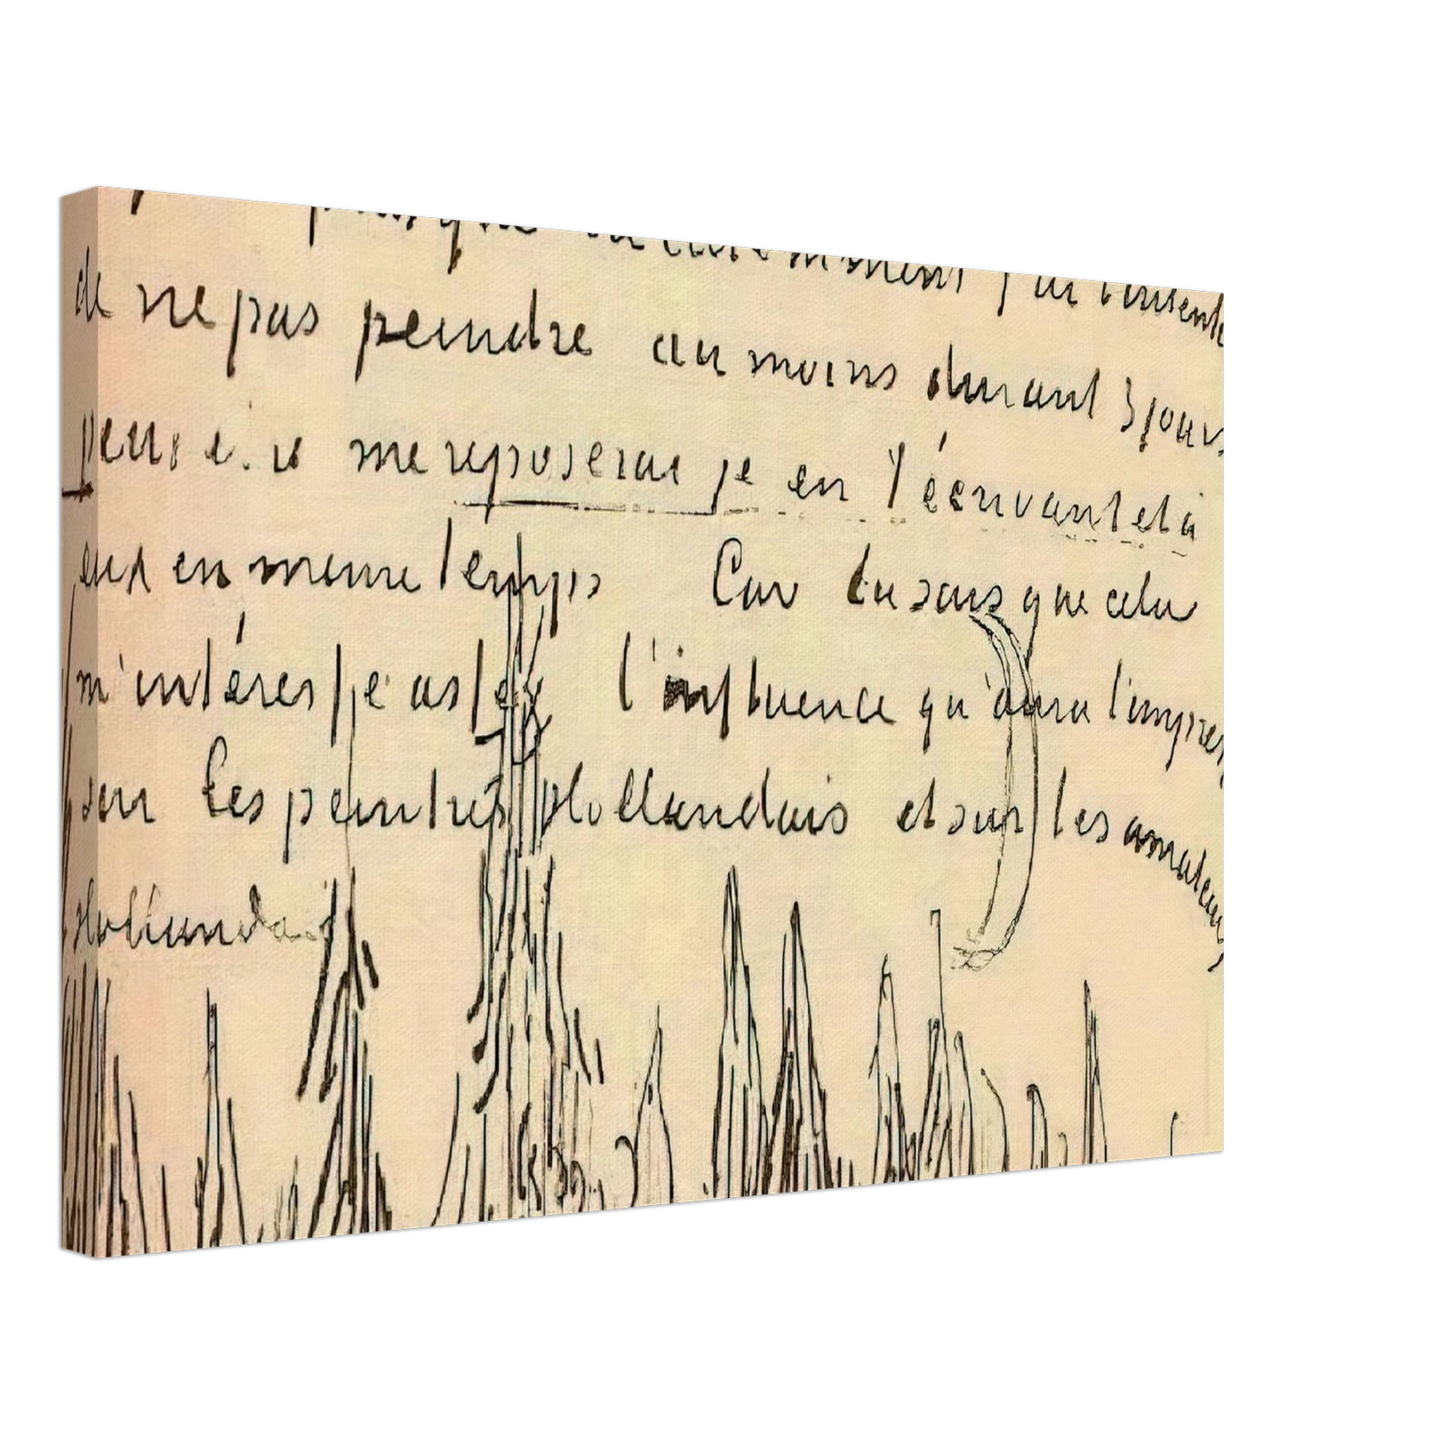 puisque dans ce moment j'ai l'intente
de ne pas peindre au moins durant 3 jours
peut être me reposerai je en t'écrivant et à
eux en meme temps Car tu sais que cela
m'intéresse assez l'influence qu'aura l'impres
sur les peintres Hollandais et sur les amateurs
Hollandais